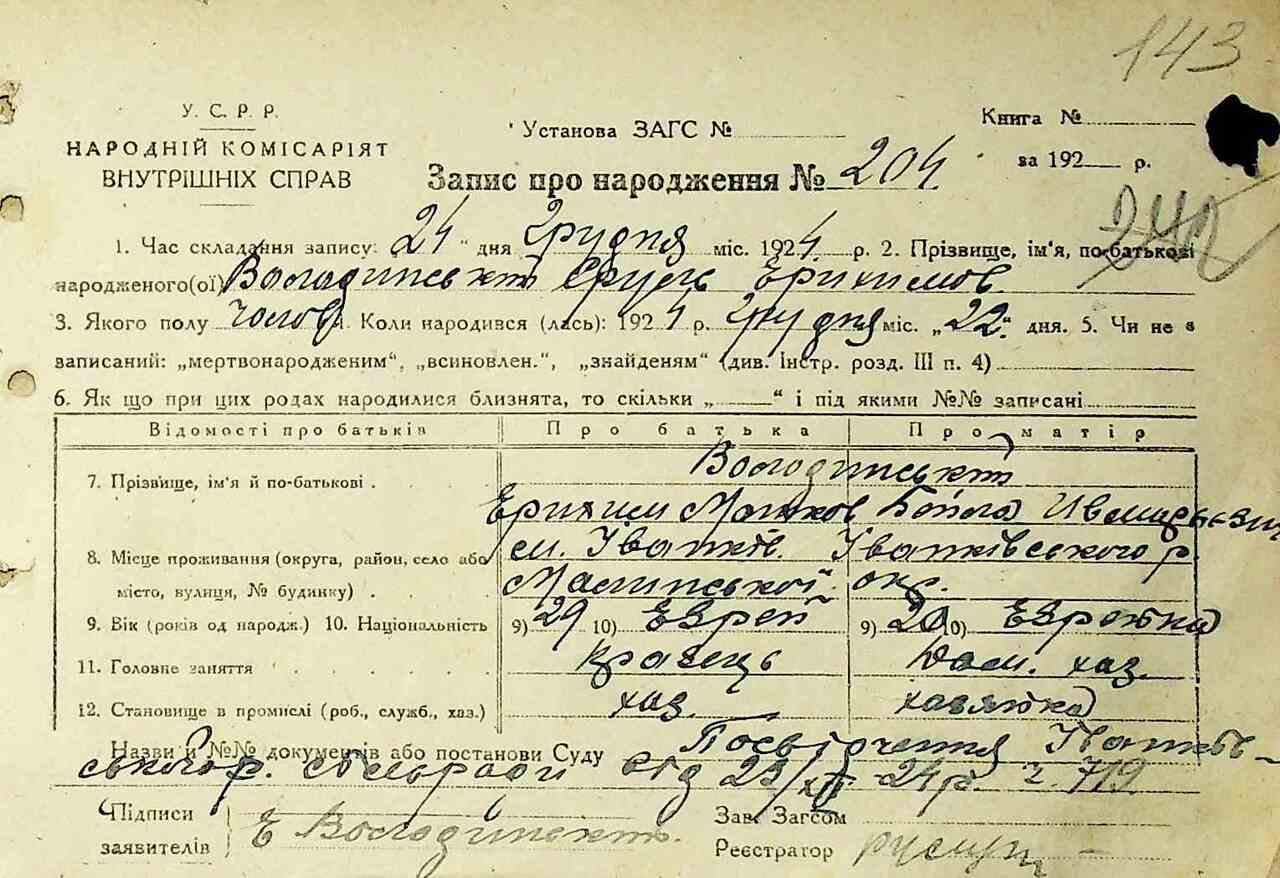 143
У. С. Р. Р.
НАРОДНІЙ КОМІСАРІЯТ
ВНУТРІШНІХ СПРАВ
Установа ЗАГС №
Книга №
за 192 р.
Запис про народження № 204.
1. Час складання запису: 24 " дня Грудня міс. 1924. р. 2. Прізвище, ім'я, по-батькові
народженого(ої) Володинський Сруль Ерихимов.
3. Якого полу Чолов. Коли народився (лась): 1924 р. Грудня міс. „22" дня. 5. Чи не з
записаний: „мертвонародженим“, „всиновлен.“, „знайденям“ (див. Інстр. розд. III п. 4)
6. Як що при цих родах народилися близнята, то скільки „ “ і під якими №№ записані
Відомості про батьків Про батька Про матір
7. Прізвище, ім'я й по-батькові Володинський
Ерихим Мошков
8. Місце проживання (округа, район, село або м. Іванків. Іванківського р.
місто, вулиця, № будинку) Малинської окр.
9. Вік (років од народж.) 10. Національність 9) 29 10) Еврей 9) 20 10) Еврейка
11. Головне заняття Кравець Дом. хаз.
12. Становище в промислі (роб., служб., хаз.) хаз. хазяйка
Назви й №№ документів або постанови Суду Посвідчення Іванків-
ського р. сельради від 23/XII 24 р. ч. 719.
Підписи
заявителів Е Володинский.
Зав. Загсом
Реєстратор